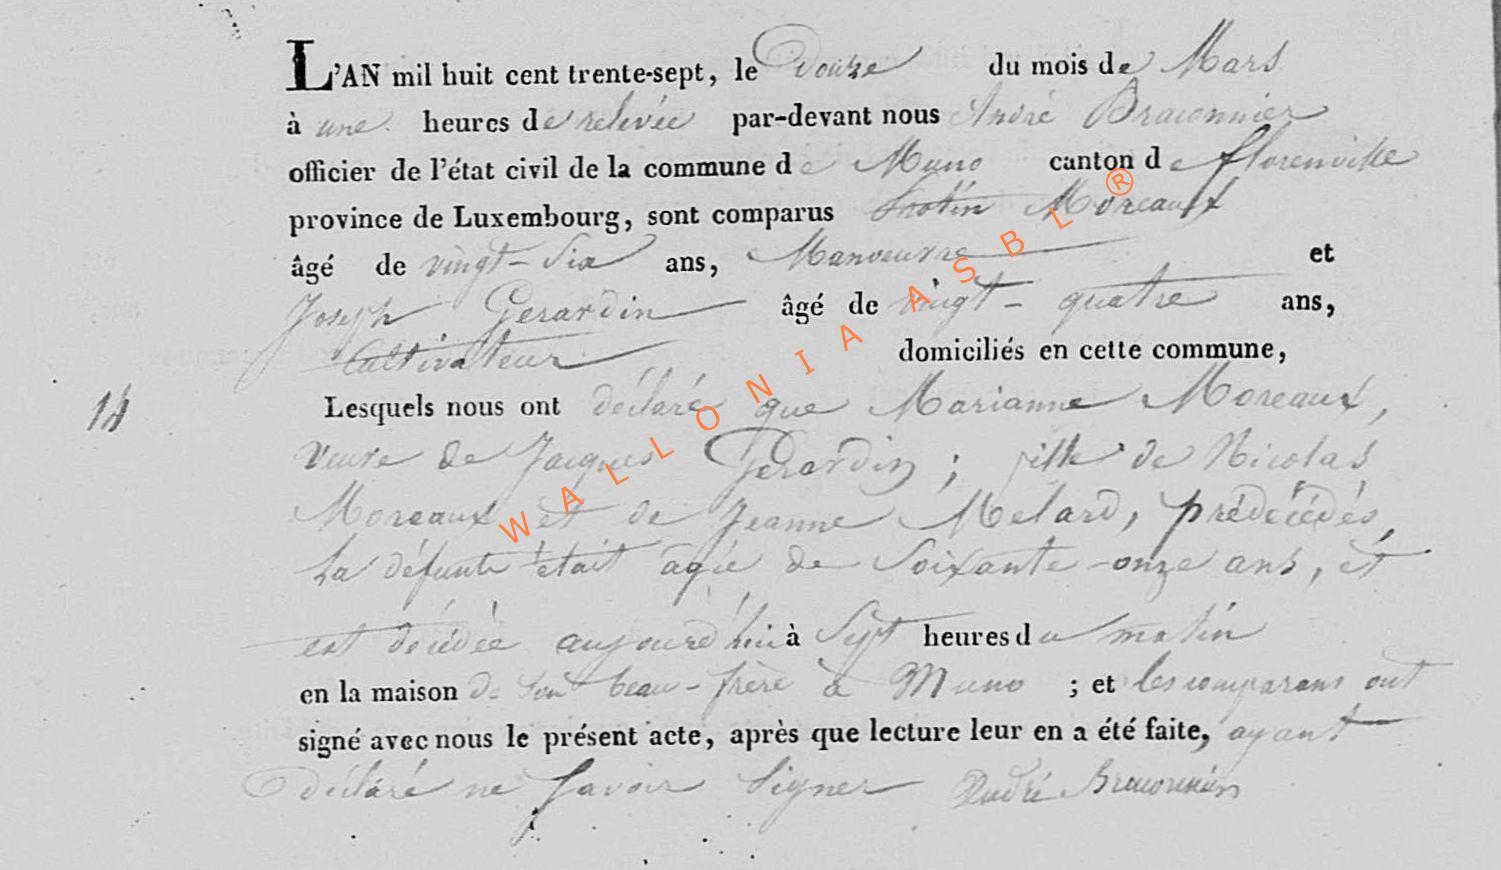 L'AN mil huit cent trente-sept, le Douze du mois de Mars
à une heures de relevée par-devant nous André Braconnier
officier de l'état civil de la commune de Muno canton de florenville
province de Luxembourg, sont comparus Moreaux
âgé de vingt-Six ans, Manoeuvre et
Joseph Gerardin âgé de vingt-quatre ans,
Cultivateur domiciliés en cette commune,
14 Lesquels nous ont déclaré que Marianne Moreaux,
veuve de Jacques Gerardin; fille de Nicolas
Moreaux et de Jeanne Melard, prédécédés,
La défunte était agée de Soixante-onze ans, et
est décédée aujourd'hui à Sept heures du matin
en la maison de Son beau-frère à Muno ; et les comparans ont
signé avec nous le présent acte, après que lecture leur en a été faite, ayant
Déclaré ne Savoir Signer André Braconnier
WALLONIA ASBL ®